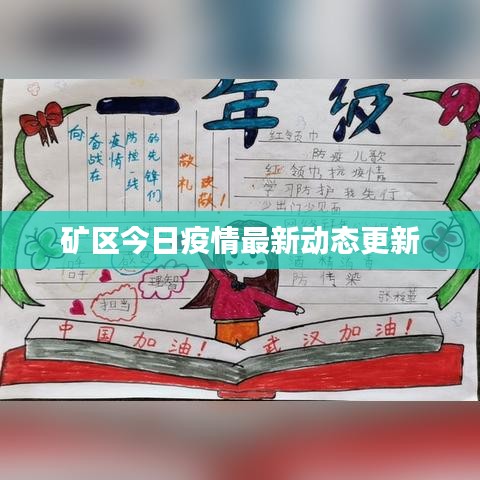 一年级
向
奋战在
疫情
防控一线
的先锋们
敬礼
红领巾
防疫儿歌
红领巾抗疫情
学习防护我先行
少出门少见面
矿区今日疫情最新动态更新
理智
担当
中国加油!
武汉加油!